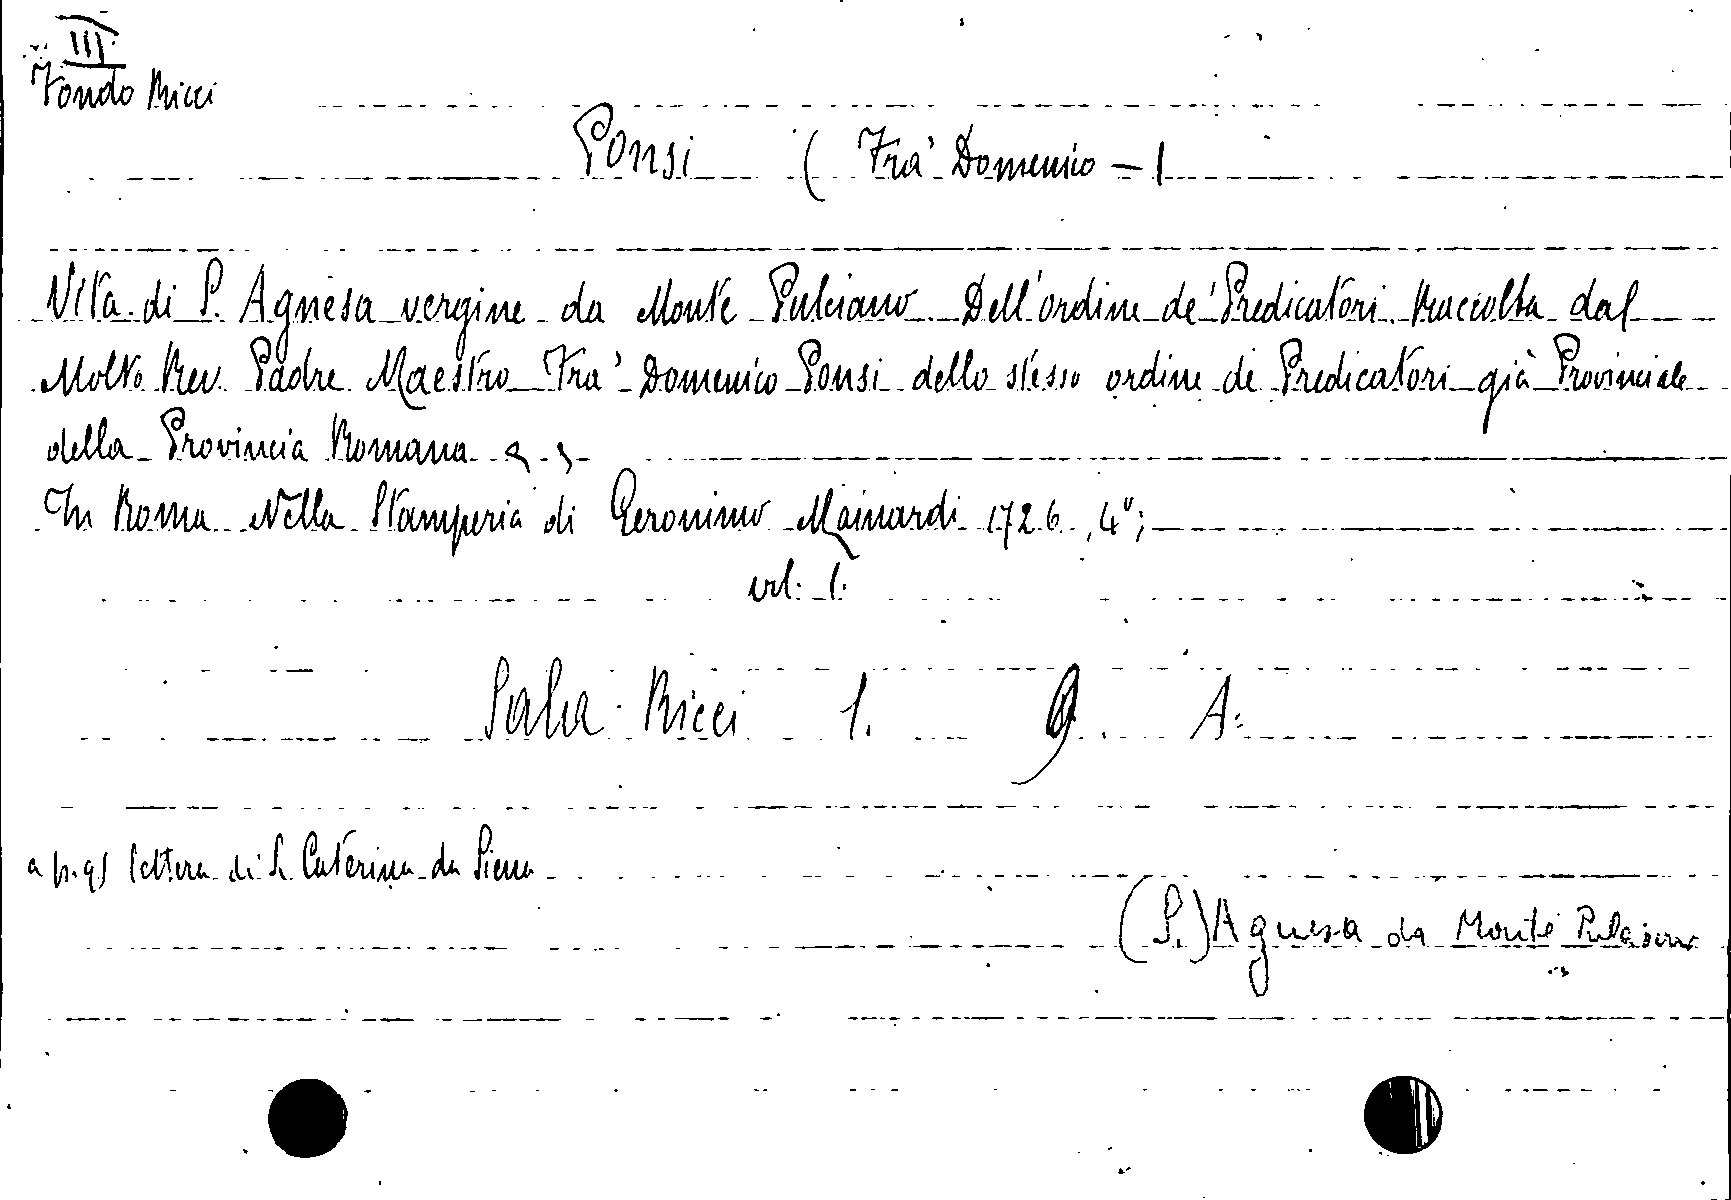 III
Fondo Ricci
Ponsi ( Fra' Domenico - )
Vita di S. Agnesa vergine da Monte Pulciano Dell'ordine de' Predicatori Raccolta dal
Molto Rev. Padre Maestro Fra' Domenico Ponsi dello stesso ordine de Predicatori già Provinciale
della Provincia Romana
In Roma Nella Stamperia di Geronimo Mainardi 1726, 4°;
vol. 1.
Sala Ricci 1. 9. A.
a p. 91 lettera di S. Caterina da Siena
(S.) Agnesa da Monte Pulciano